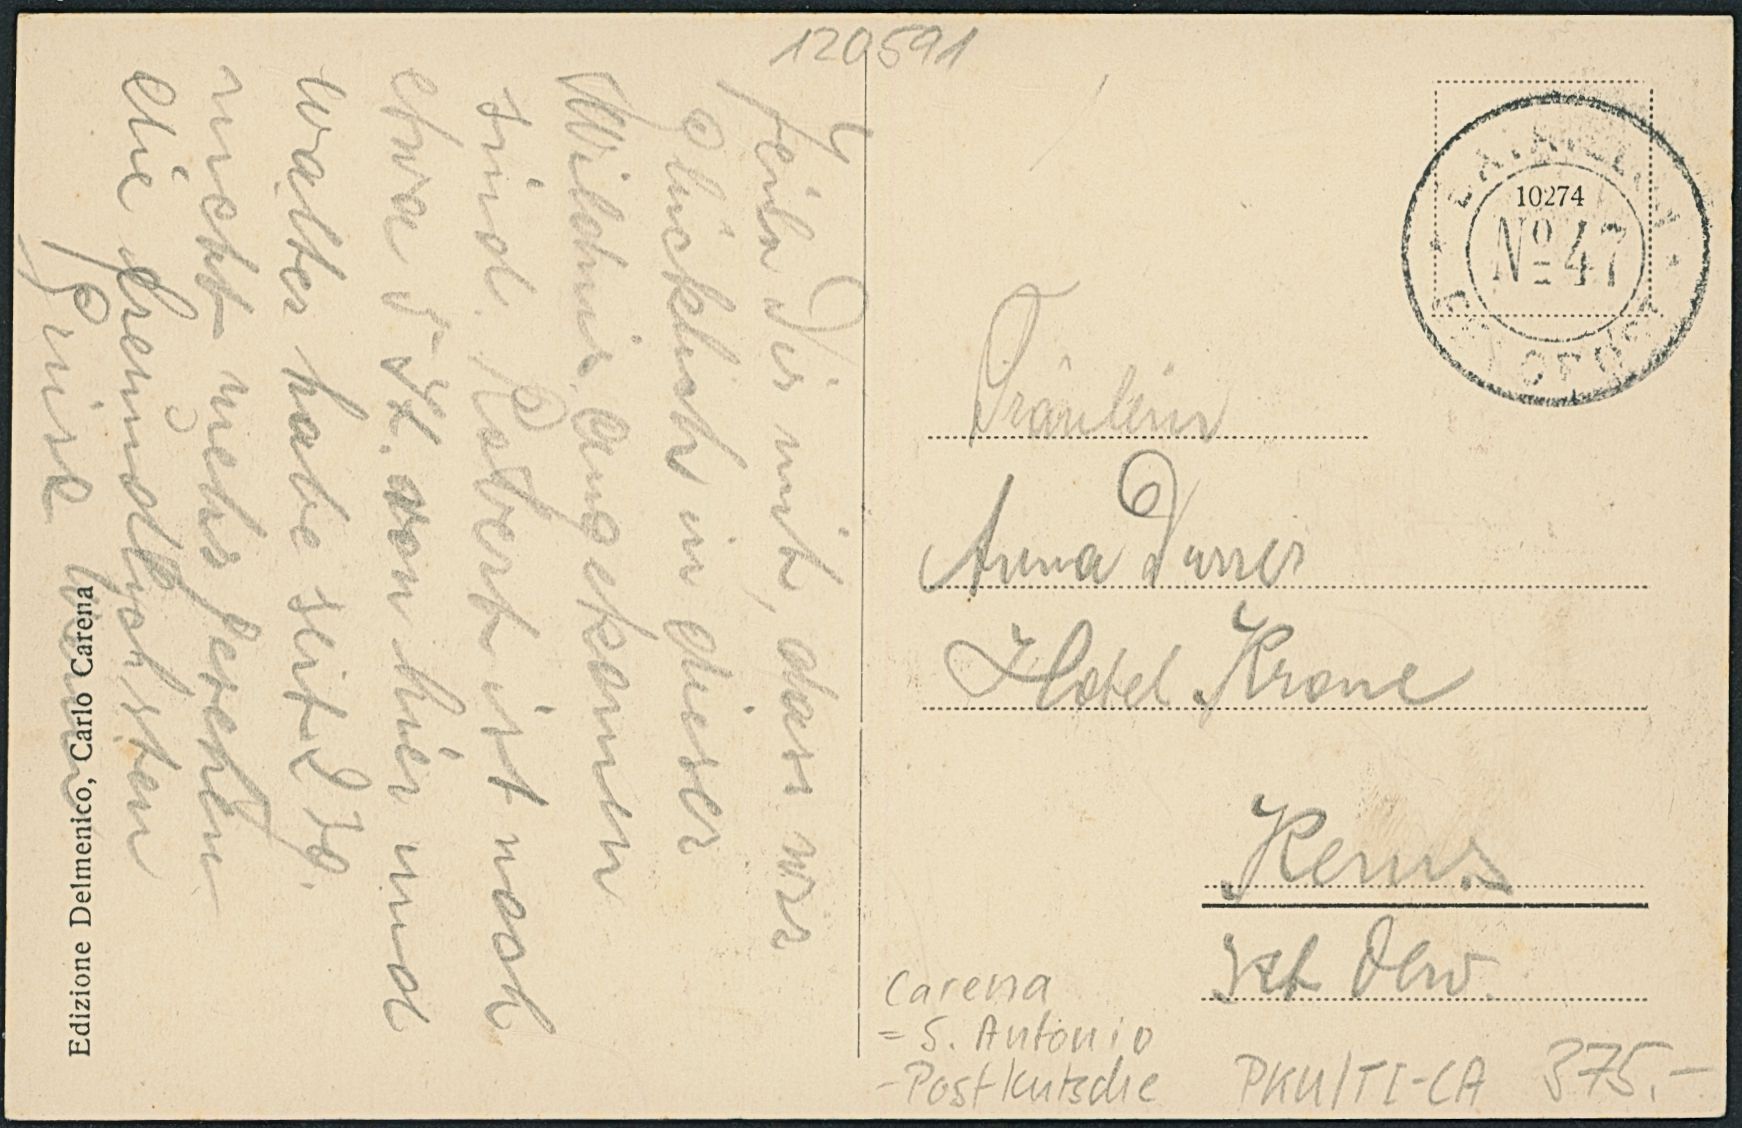 120591
Teile Dir mit, dass wir
glücklich in dieser
Wildnis angekommen
sind. Robert ist noch
etwa 5 St. von hier und
Walter habe seit 2 Tg.
nicht mehr gesehen
Die freundlichsten
Grüsse
Edizione Delmenico, Carlo Carena
10274
No 47
Fräulein
Anna Durrer
Hotel Krone
Kerns
Kt Obw.
Carena
= S. Antonio
- Postkutsche
PKU/TI-CA 375.-